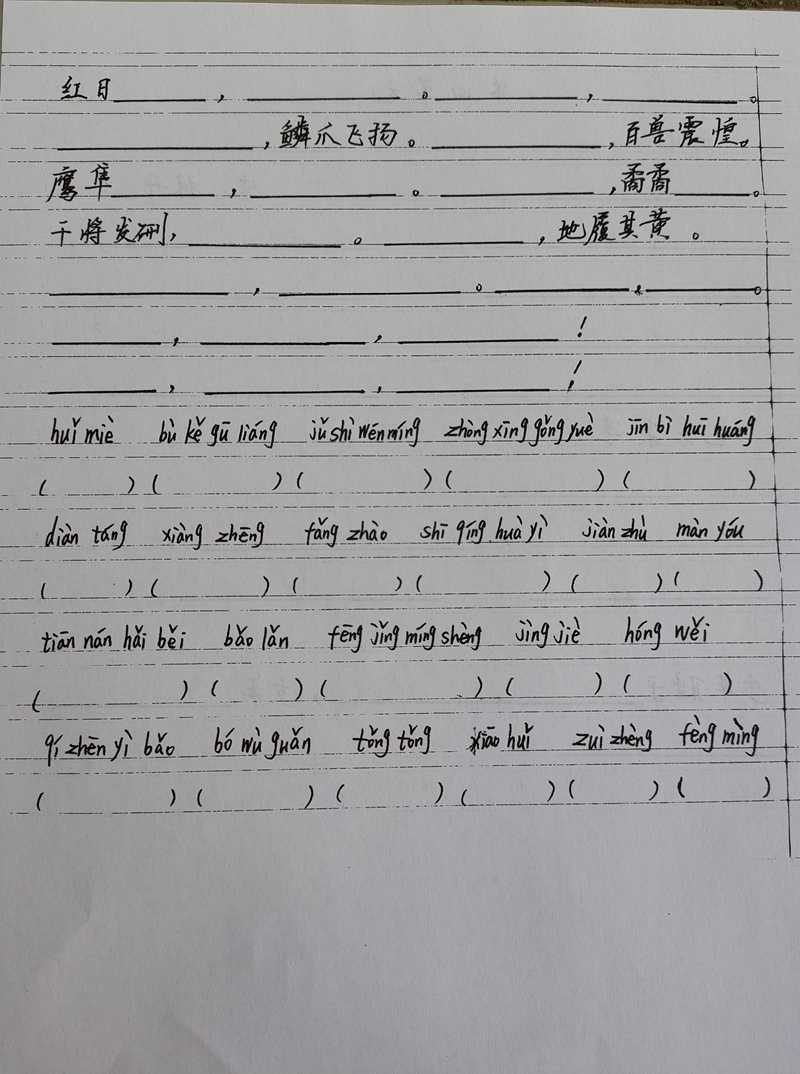 红日______，________。________，________。
________，鳞爪飞扬。________，百兽震惶。
鹰隼______，________。________，矞矞______。
干将发硎，________。________，地履其黄。
________，________。________，________。
______，________，________！
______，________，________！
huǐ miè bù kě gū liáng jǔ shì wén míng zhòng xīng gǒng yuè jīn bì huī huáng
( ) ( ) ( ) ( ) ( )
diàn táng xiàng zhēng fǎng zhào shī qíng huà yì jiàn zhù màn yóu
( ) ( ) ( ) ( ) ( ) ( )
tiān nán hǎi běi bǎo lǎn fēng jǐng míng shèng jìng jiè hóng wěi
( ) ( ) ( ) ( ) ( )
qí zhēn yì bǎo bó wù guǎn tǒng tǒng xiāo huǐ zuì zhèng fèng mìng
( ) ( ) ( ) ( ) ( ) ( )